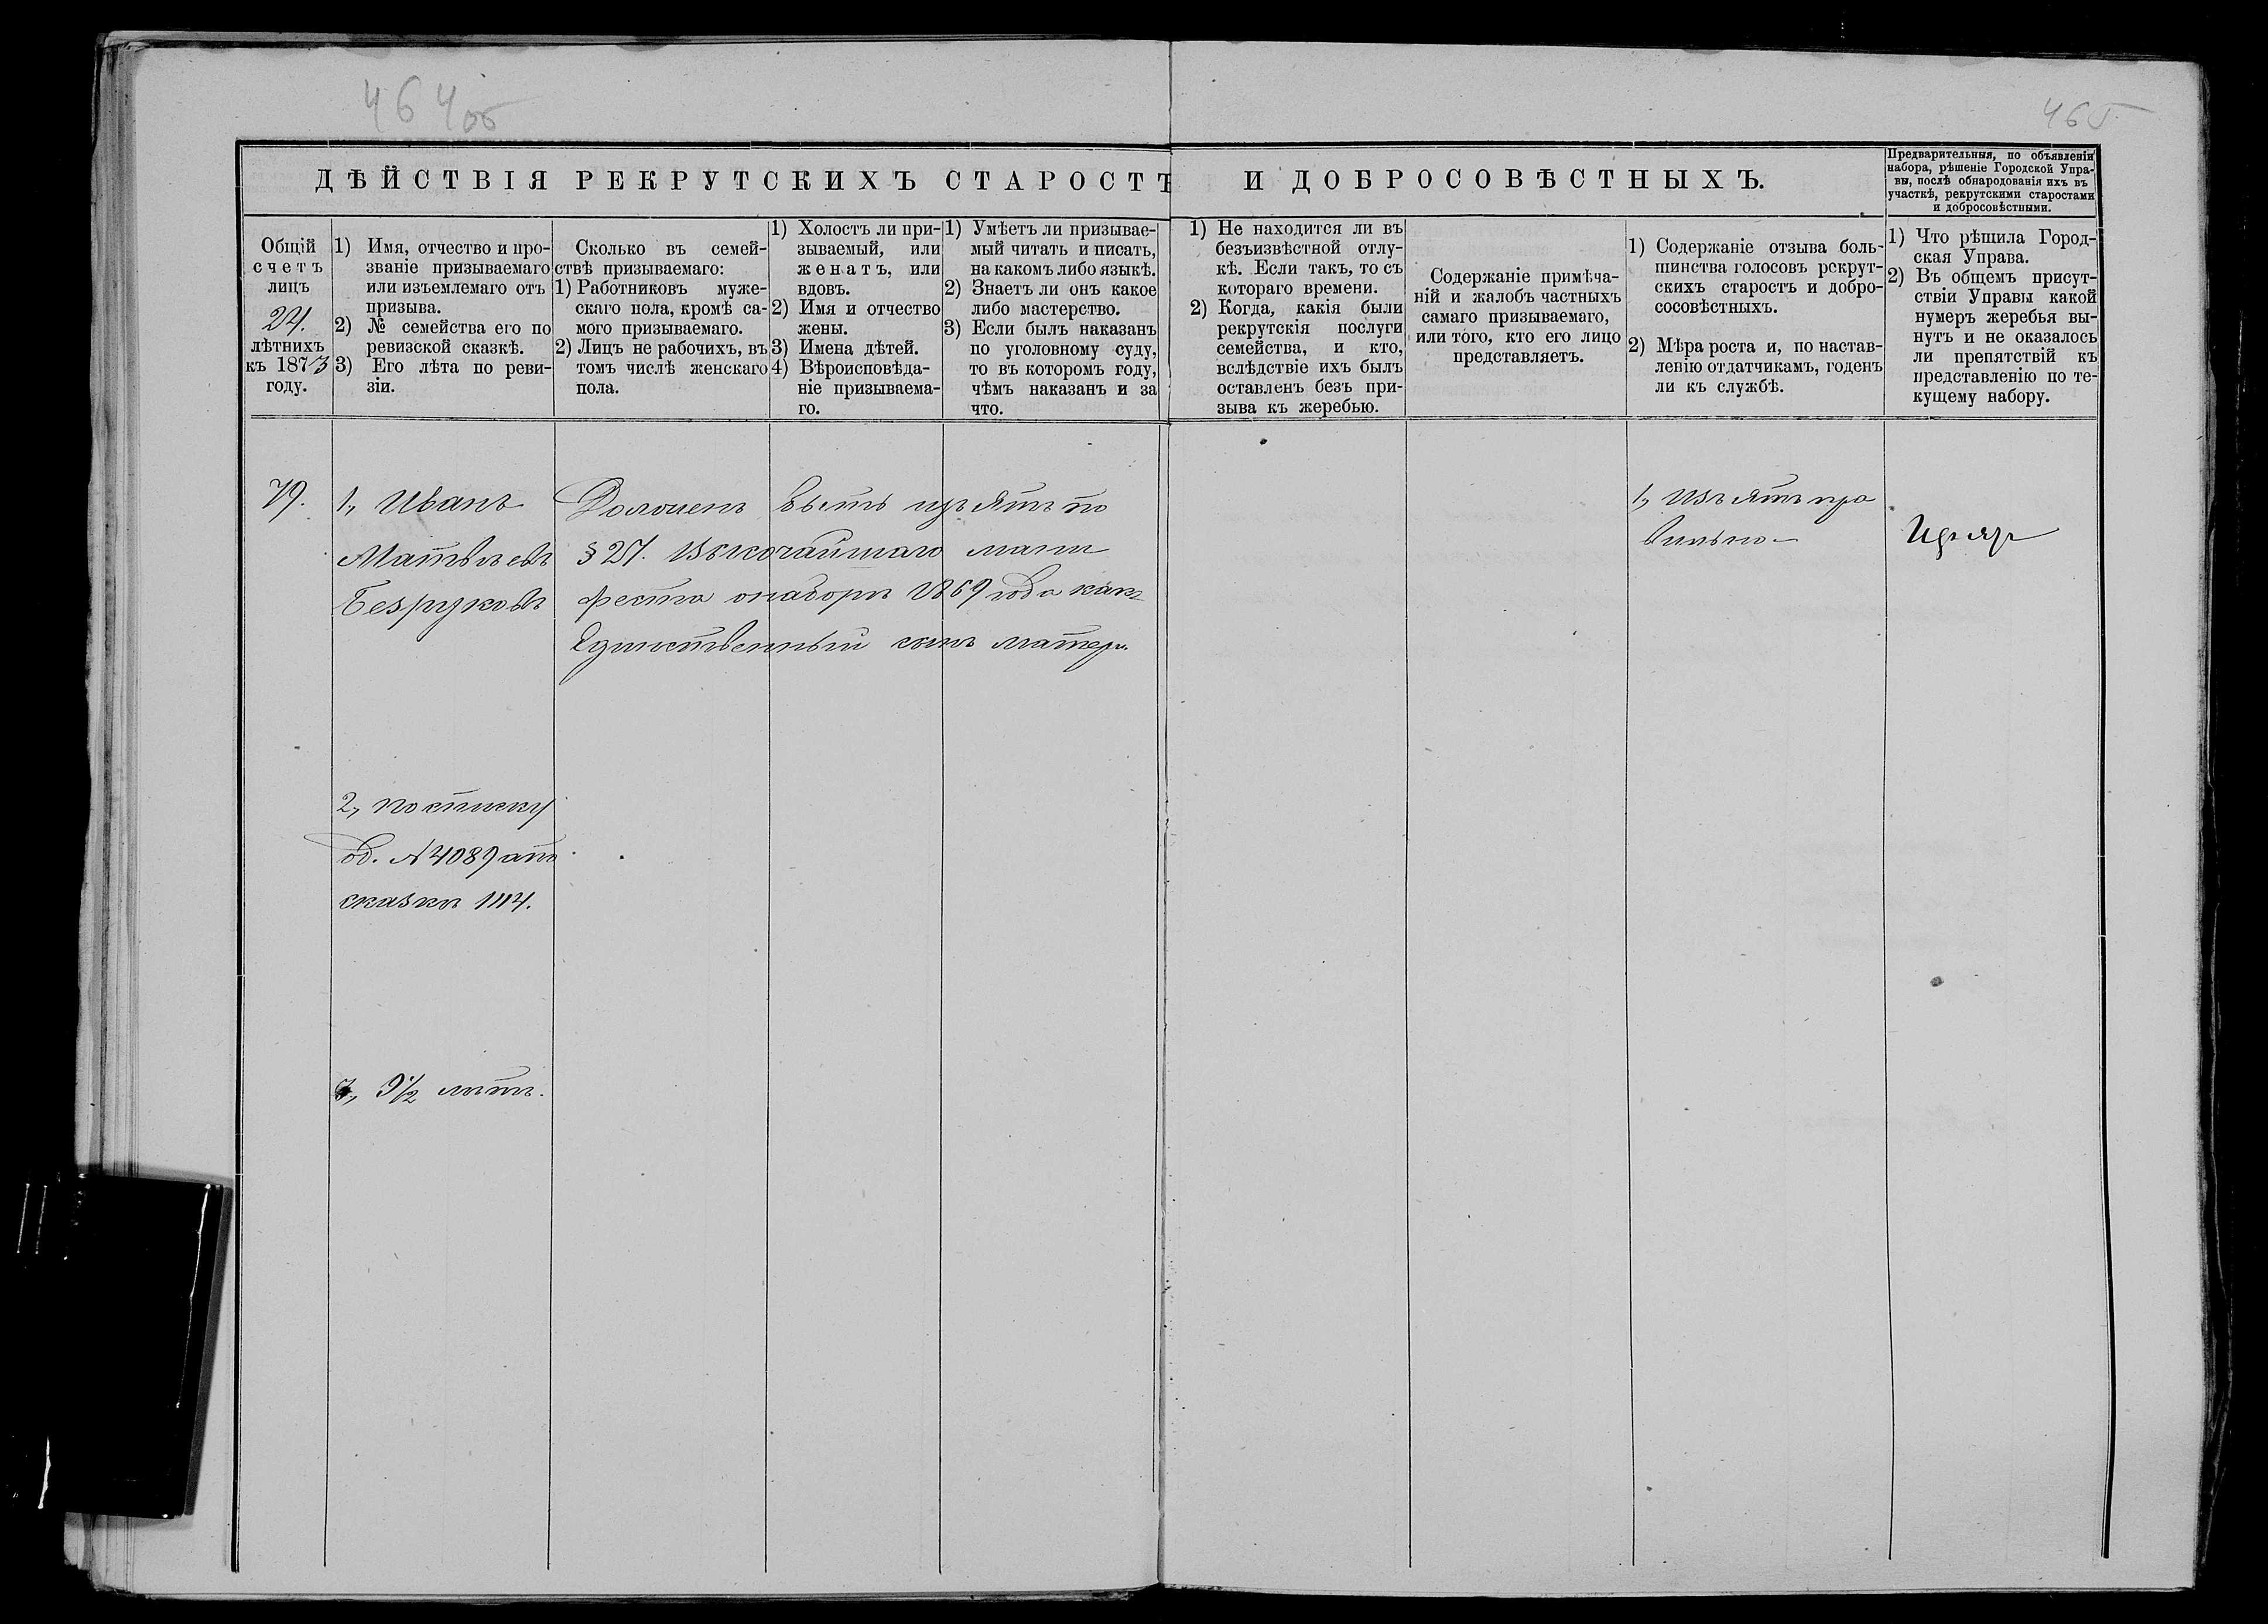 464об
465
ДѢЙСТВІЯ РЕКРУТСКИХЪ СТАРОСТЪ И ДОБРОСОВѢСТНЫХЪ.
Предварительныя, по объявленіи
набора, рѣшеніе Городской Упра-
вы, послѣ обнародованія ихъ въ
участкѣ, рекрутскими старостами
и добросовѣстными.
Общій
счетъ
лицъ
21.
лѣтнихъ
къ 1873
году.
1) Имя, отчество и про-
званіе призываемаго
или изъемлемаго отъ
призыва.
2) № семейства его по
ревизской сказкѣ.
3) Его лѣта по реви-
зіи.
Сколько въ семей-
ствѣ призываемаго:
1) Работниковъ муже-
скаго пола, кромѣ са-
мого призываемаго.
2) Лицъ не рабочихъ, въ
томъ числѣ женскаго
пола.
1) Холостъ ли при-
зываемый, или
женатъ, или
вдовъ.
2) Имя и отчество
жены.
3) Имена дѣтей.
4) Вѣроисповѣда-
ніе призываема-
го.
1) Умѣетъ ли призывае-
мый читать и писать,
на какомъ либо языкѣ.
2) Знаетъ ли онъ какое
либо мастерство.
3) Если былъ наказанъ
по уголовному суду,
то въ которомъ году,
чѣмъ наказанъ и за
что.
1) Не находится ли въ
безъизвѣстной отлу-
кѣ. Если такъ, то съ
котораго времени.
2) Когда, какія были
рекрутскія послуги
семейства, и кто,
вслѣдствіе ихъ былъ
оставленъ безъ при-
зыва къ жеребью.
Содержаніе примѣча-
ній и жалобъ частныхъ
самаго призываемаго,
или того, кто его лицо
представляетъ.
1) Содержаніе отзыва боль-
шинства голосовъ рекрут-
скихъ старостъ и добро-
сосовѣстныхъ.
2) Мѣра роста и, по настав-
ленію отдатчикамъ, годенъ
ли къ службѣ.
1) Что рѣшила Город-
ская Управа.
2) Въ общемъ присут-
ствіи Управы какой
нумеръ жеребья вы-
нутъ и не оказалось
ли препятствій къ
представленію по те-
кущему набору.
79.
1, Иванъ
Матвѣевъ
Безруковъ
Долженъ быть изъятъ по
§ 27. Высочайшаго мани
феста о наборѣ 1869 года какъ
Единственный сынъ матери.
1, Изъятъ пра
вильно
Изъят
2, по списку
об. № 4089 а по
сказкѣ 1114.
3, 9½ лѣтъ.